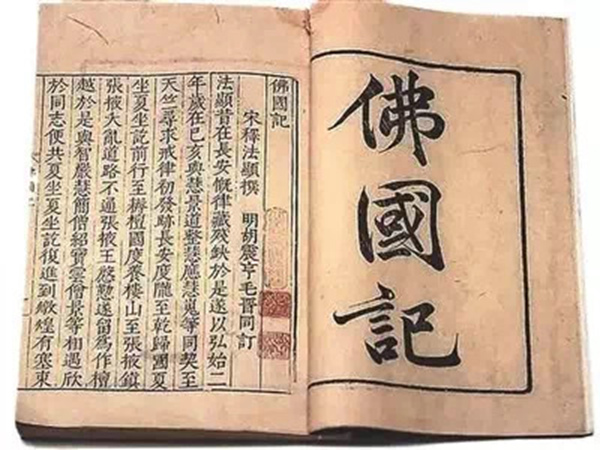 佛國記
佛國記
宋釋法顯撰 明胡震亨毛晉同訂
法顯昔在長安慨律藏殘缺於是遂以弘始二
年歲在巳亥與慧景道整慧應慧嵬等同契至
天竺尋求戒律初發跡長安度隴至乾歸國夏
坐夏坐訖前行至耨檀國度養樓山至張掖鎮
張掖大亂道路不通張掖王慇懃遂留爲作檀
越於是與智嚴慧簡僧紹寶雲僧景等相遇欣
於同志便共夏坐夏坐訖復進到燉煌有塞東